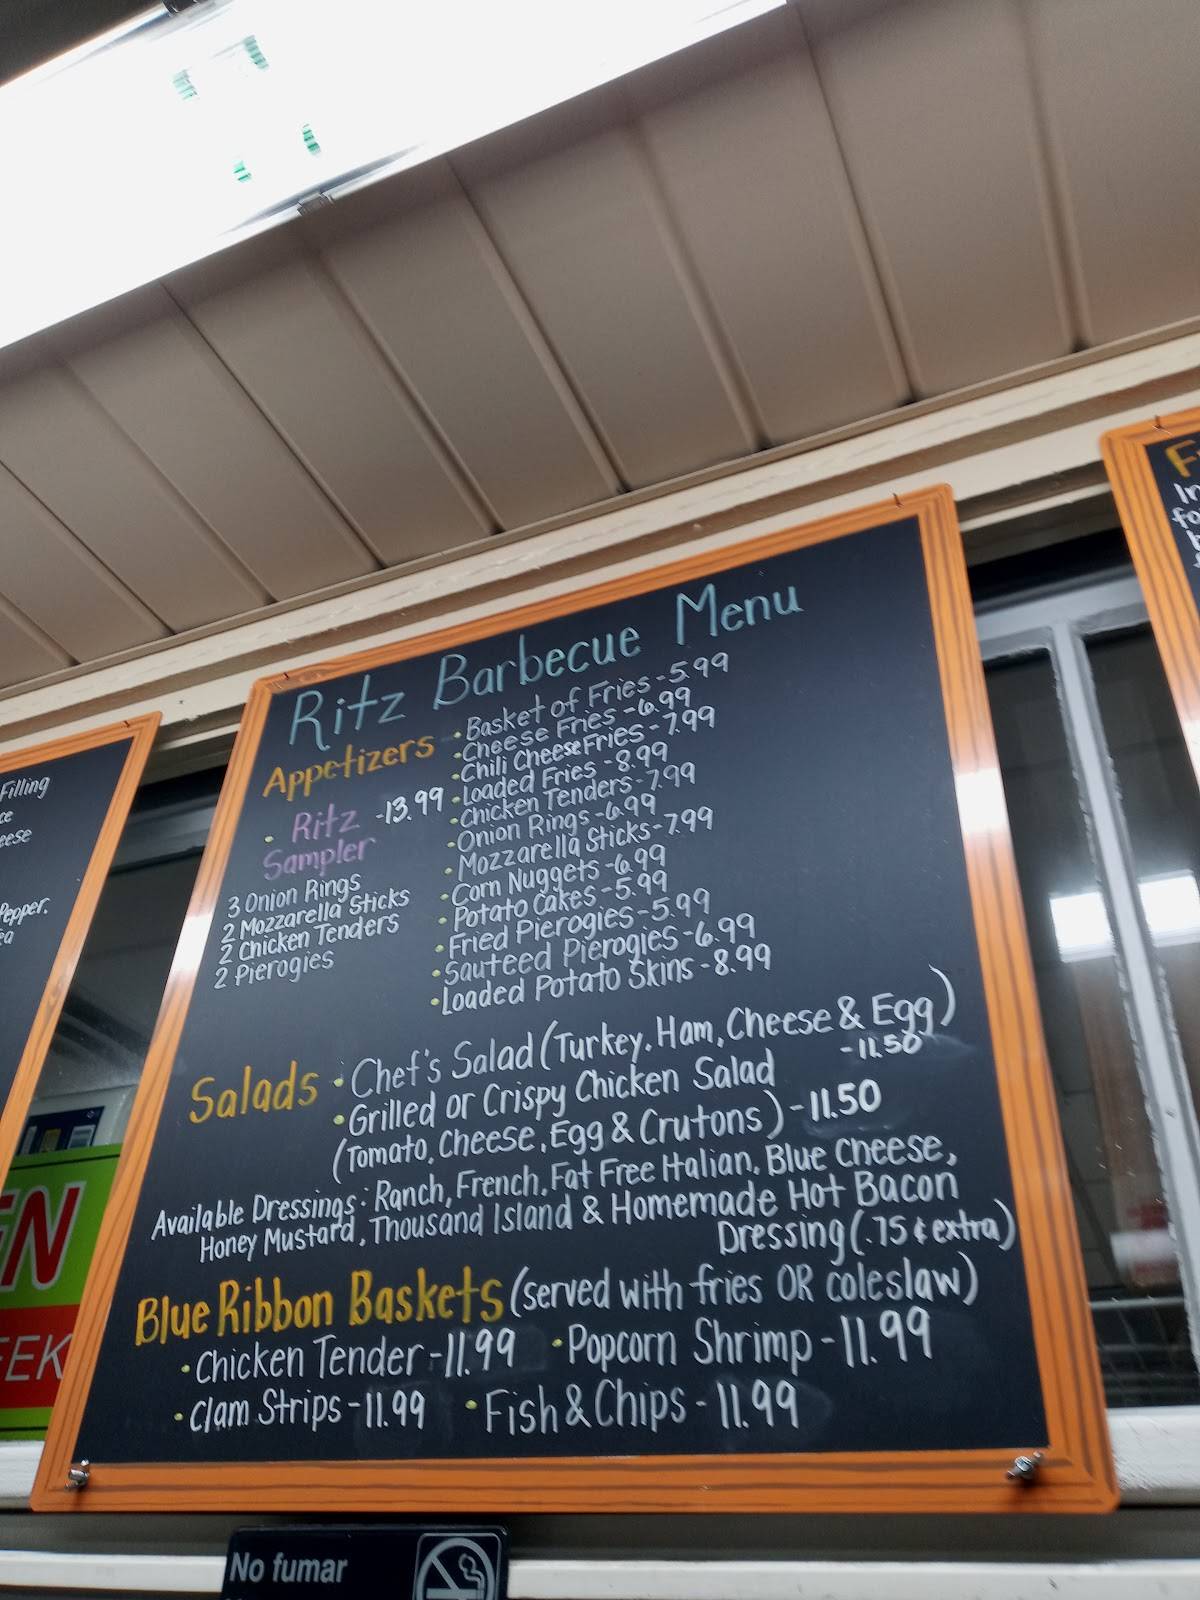 Ritz Barbecue Menu
Appetizers
· Ritz Sampler -13.99
3 Onion Rings
2 Mozzarella Sticks
2 Chicken Tenders
2 Pierogies
· Basket of Fries - 5.99
· Cheese Fries - 6.99
· Chili Cheese Fries - 7.99
· Loaded Fries - 8.99
· Chicken Tenders - 7.99
· Onion Rings - 6.99
· Mozzarella Sticks - 7.99
· Corn Nuggets - 6.99
· Potato Cakes - 5.99
· Fried Pierogies - 5.99
· Sauteed Pierogies - 6.99
· Loaded Potato Skins - 8.99
Salads · Chef's Salad (Turkey, Ham, Cheese & Egg)
- 11.50
· Grilled or Crispy Chicken Salad
(Tomato, Cheese, Egg & Crutons) - 11.50
Available Dressings: Ranch, French, Fat Free Italian, Blue Cheese,
Honey Mustard, Thousand Island & Homemade Hot Bacon
Dressing (.75¢ extra)
Blue Ribbon Baskets (served with fries OR coleslaw)
· Chicken Tender - 11.99 · Popcorn Shrimp - 11.99
· Clam Strips - 11.99 · Fish & Chips - 11.99
Filling
Pepper.
No fumar